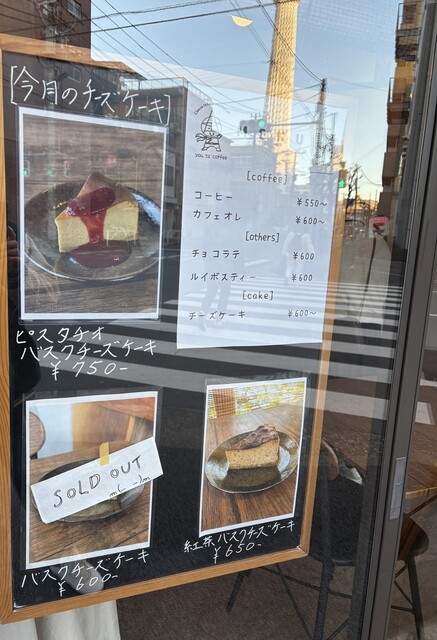 [今月のチーズケーキ]
ピスタチオ
バスクチーズケーキ
¥750-
you to coffee
[coffee]
コーヒー ¥550〜
カフェオレ ¥600〜
[others]
チョコラテ ¥600
ルイボスティー ¥600
[cake]
チーズケーキ ¥600〜
SOLD OUT
m(_ _)m
バスクチーズケーキ
¥600-
紅茶バスクチーズケーキ
¥650-